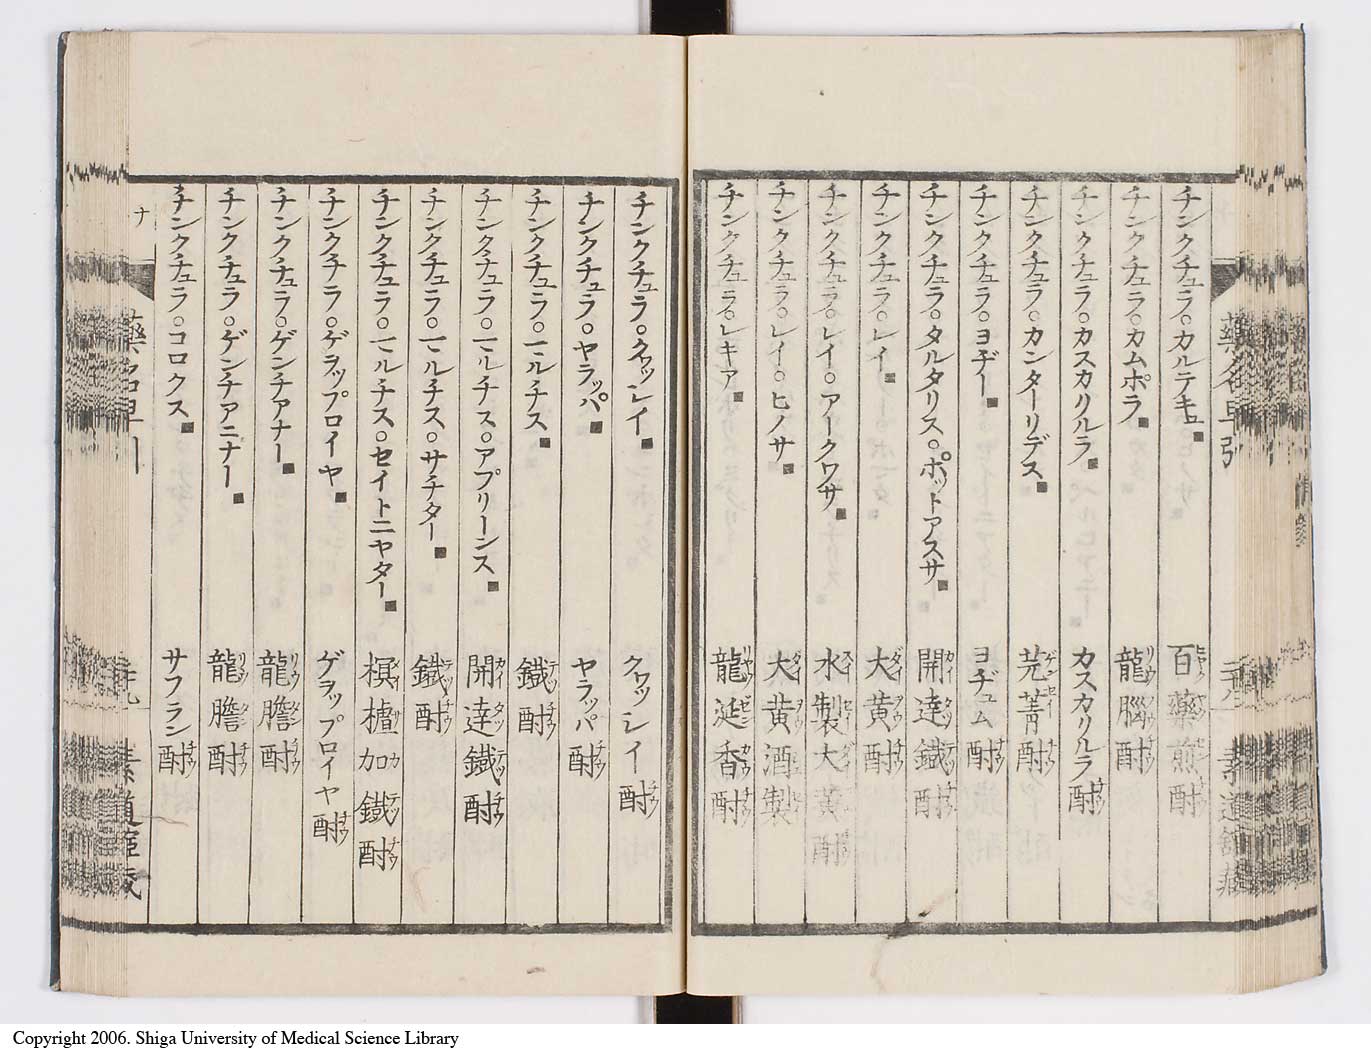 チンクチュラ。カルテキュ■ 百藥煎酎
チンクチュラ。カムポラ■ 龍腦酎
チンクチュラ。カスカリルラ■ カスカリルラ酎
チンクチュラ。カンターリデス■ 芫菁酎
チンクチュラ。ヨヂー■ ヨヂュム酎
チンクチュラ。タルタリス。ポットアスサ■ 開達鐵酎
チンクチュラ。レイ■ 大黄酎
チンクチュラ。レイ。アークワサ■ 水製大黄酎
チンクチュラ。レイ。ヒノサ■ 大黄酒製
チンクチュラ。レキア■ 龍涎香酎
チンクチュラ。クワッシイ■ クワッシイー酎
チンクチュラ。ヤラッパ■ ヤラッパ酎
チンクチュラ。マルチス■ 鐵酎
チンクチュラ。マルチス。アプリーンス■ 開達鐵酎
チンクチュラ。マルチス。サチター■ 鐵酎
チンクチュラ。マルチス。セイトニヤター■ 榠樝加鐵酎
チンクチラ。ゲヲップロイヤ■ ゲヲップロイヤ酎
チンクチュラ。ゲンチアナー■ 龍膽酎
チンクチュラ。ゲンチアニナー■ 龍膽酎
チンクチュラ。コロクス■ サフラン酎
ナ
藥名早引
Copyright 2006. Shiga University of Medical Science Library